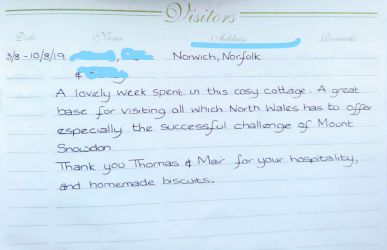 Visitors
Date Name Address Remarks
3/8 - 10/8/19 , Norwich, Norfolk
&
A lovely week spent in this cosy cottage. A great
base for visiting all which North Wales has to offer
especially the successful challenge of Mount
Snowdon.
Thank you Thomas & Mair for your hospitality,
and homemade biscuits.